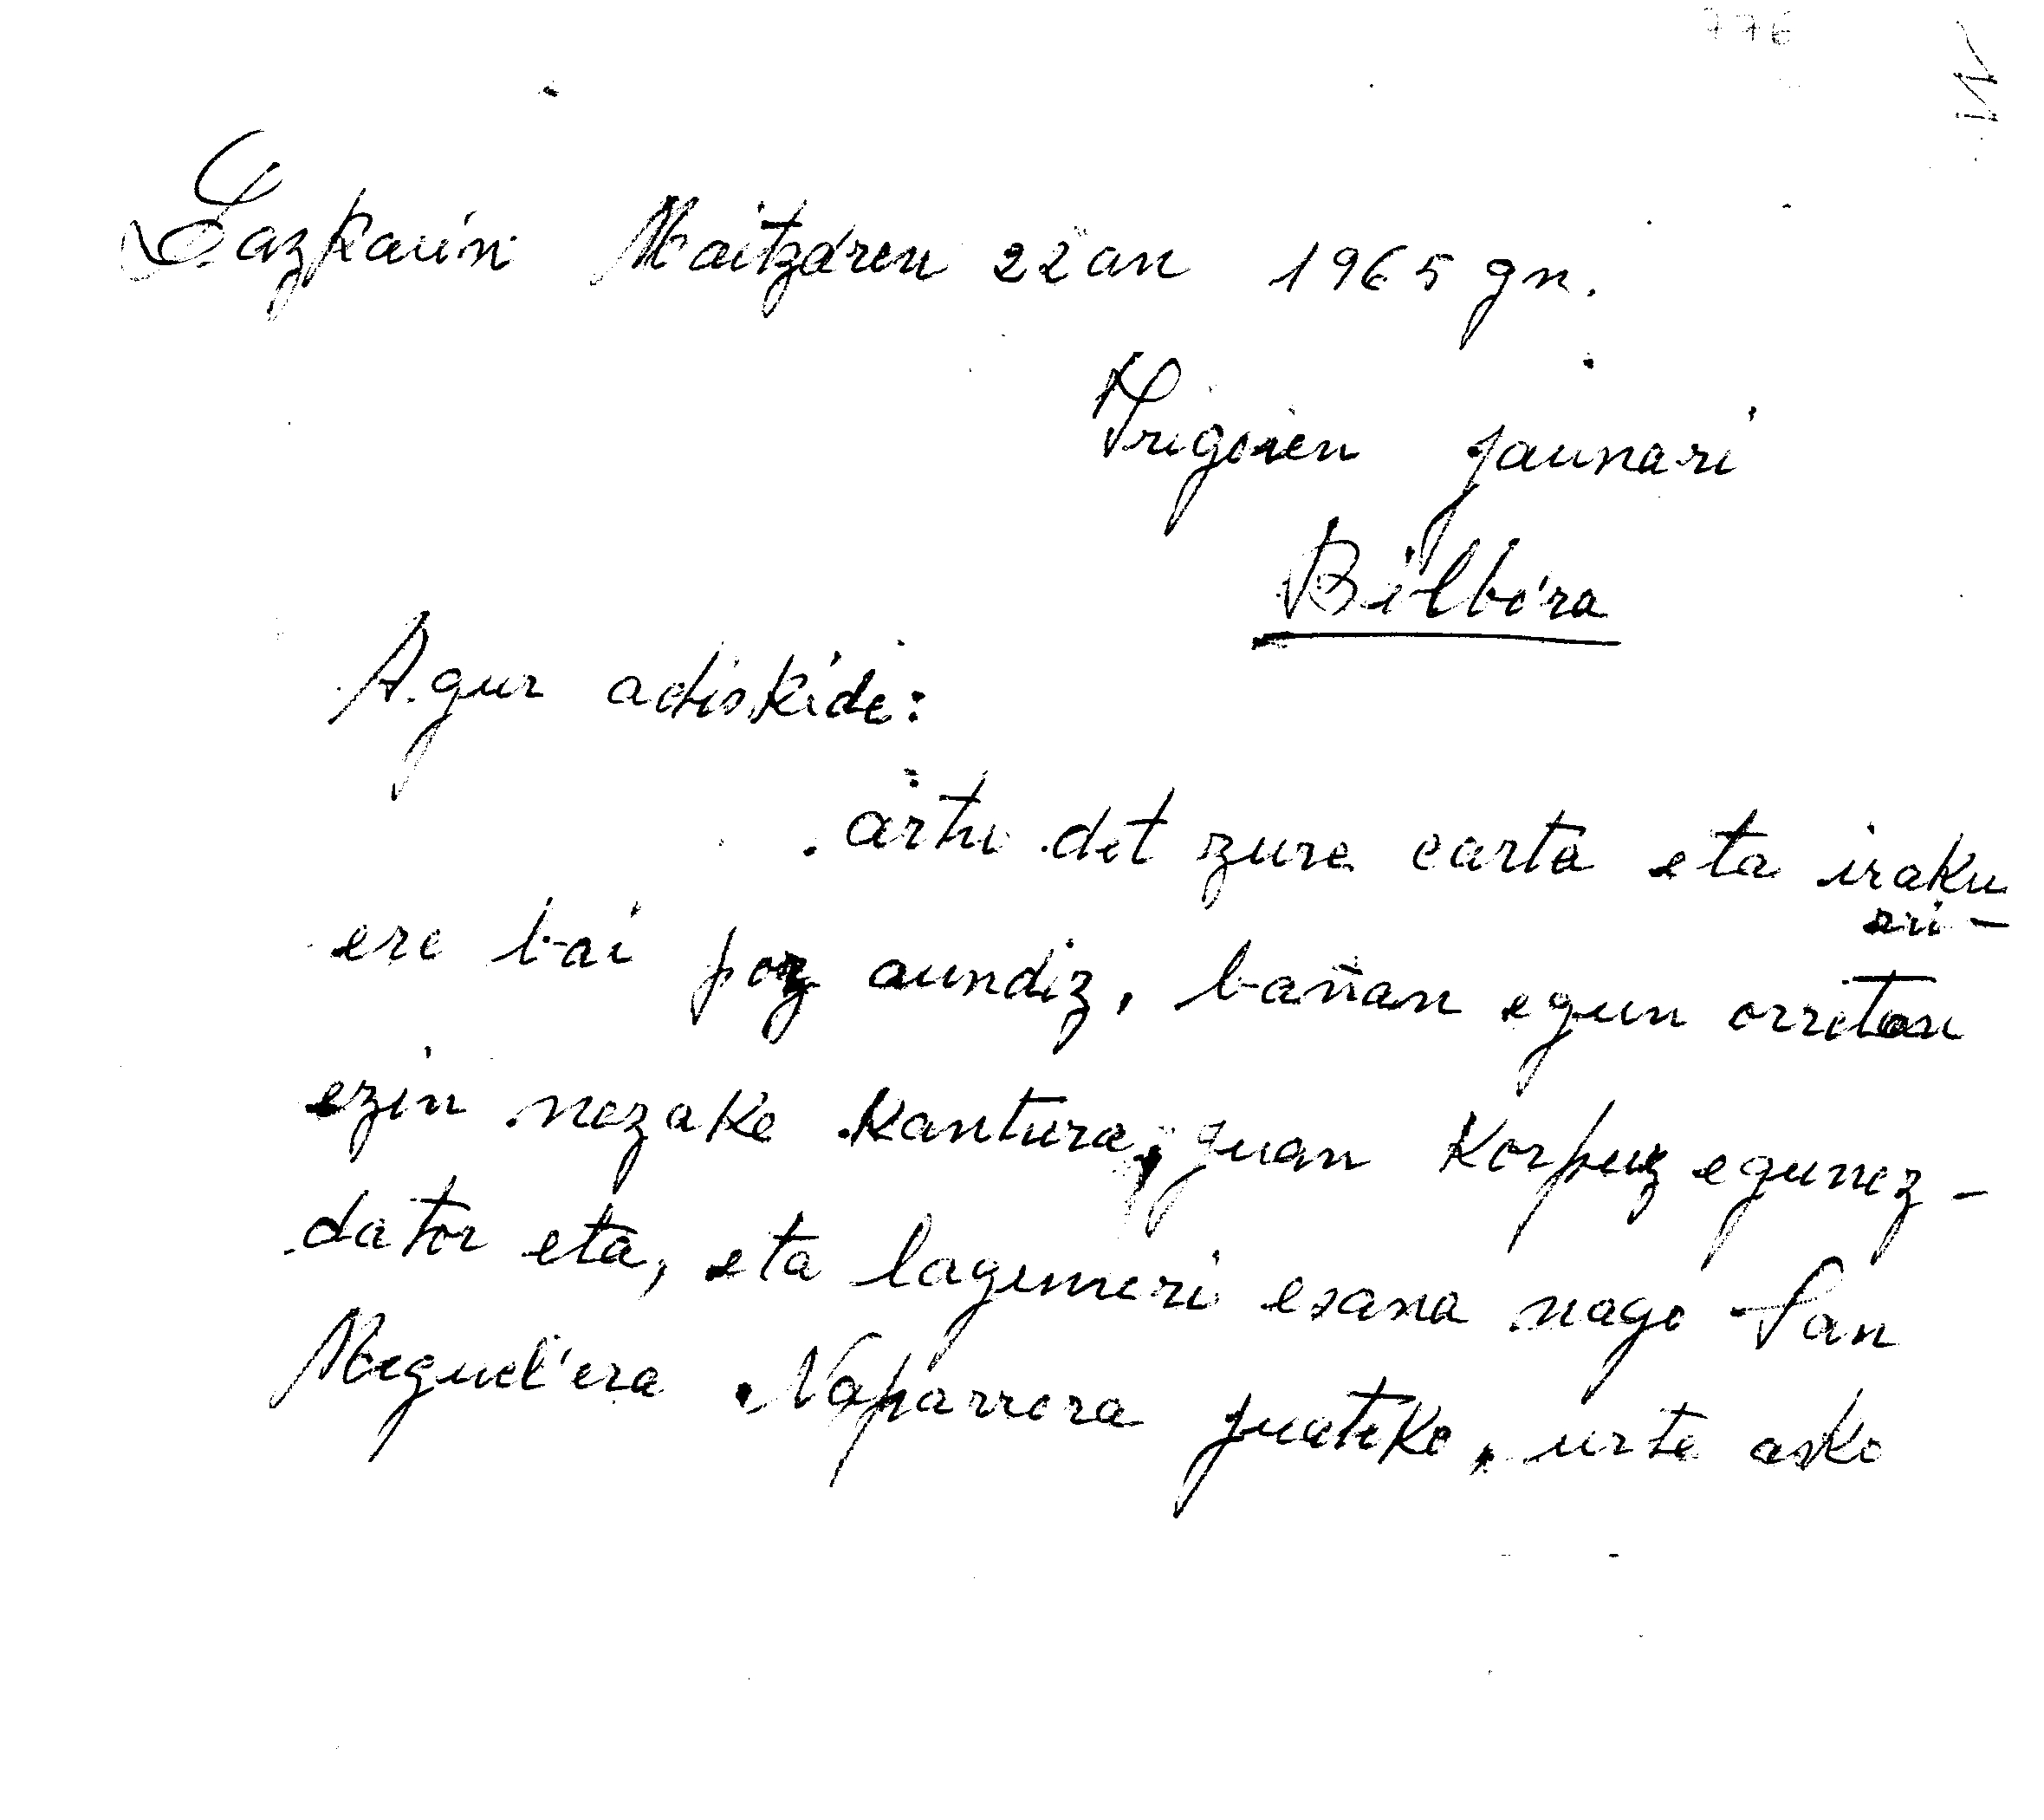 776
Lazkaun Maitzaren 22an 1965 gn.
Irigoien jaunari
Bilbora
Agur adiskide:
artu det zure carta eta iraku
rri-
ere bai poz aundiz, bañan egun orretan
ezin nezake kantura, juan Korpuz egunez-
dator eta, eta laguneri esana nago San
Meguel'era Naparrora juateko, urte asko